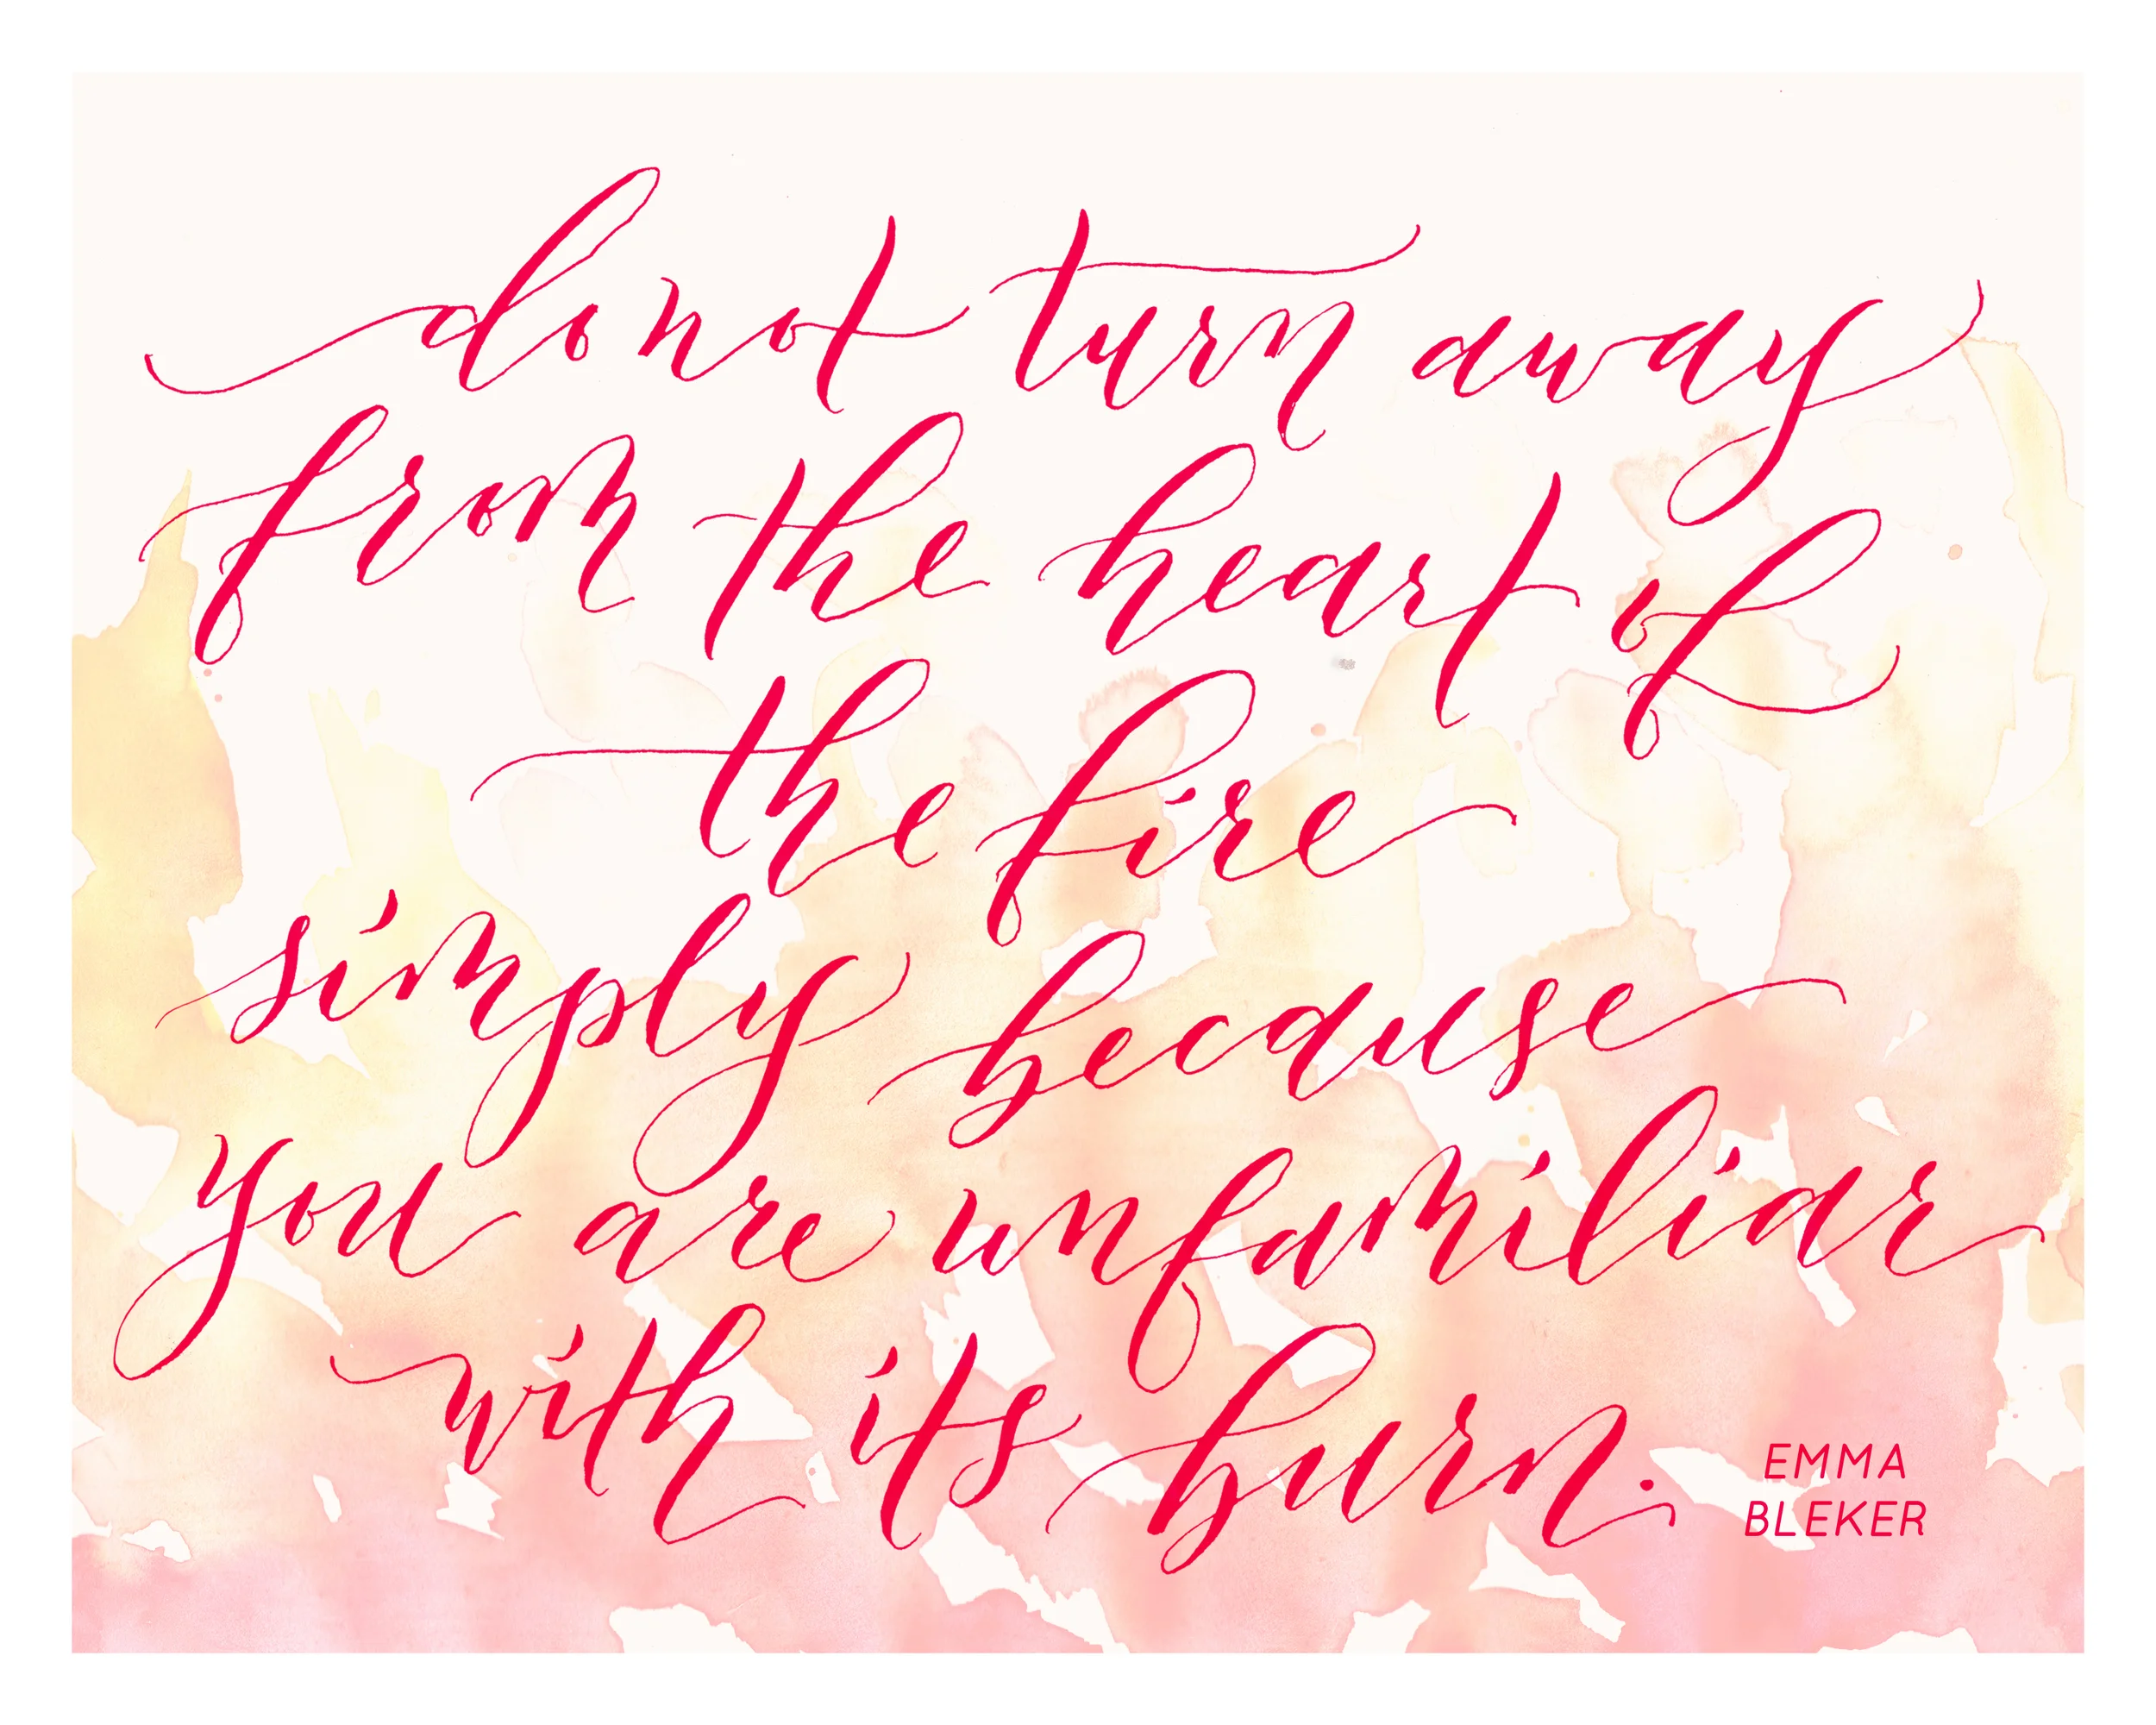 do not turn away
from the heart of
the fire
simply because
you are unfamiliar
with its burn.
EMMA
BLEKER